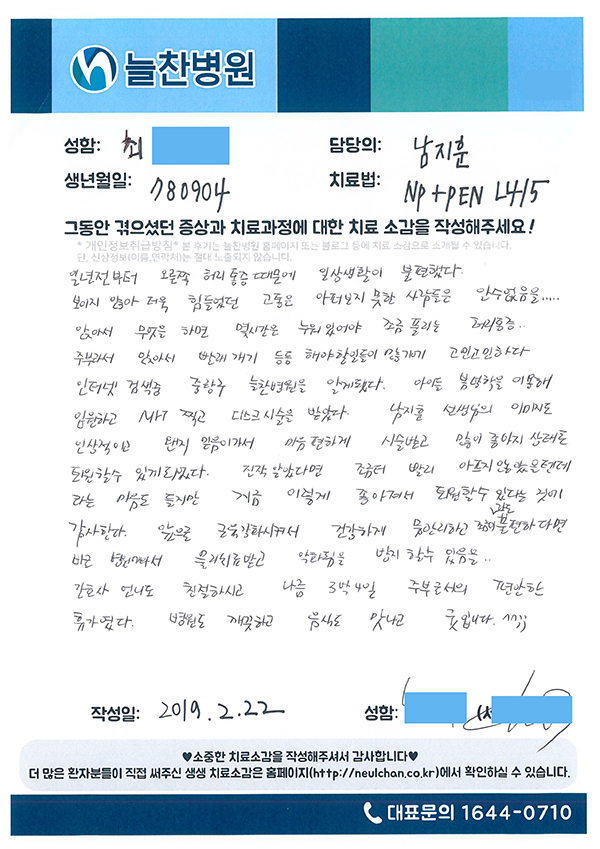 늘찬병원
성함: 최
담당의: 남지훈
생년월일: 780904
치료법: NP+PEN L4/5
그동안 겪으셨던 증상과 치료과정에 대한 치료 소감을 작성해주세요!
* 개인정보취급방침* 본 후기는 늘찬병원 홈페이지 또는 블로그 등에 치료 소감으로 소개될 수 있습니다.
단, 신상정보(이름,연락처)는 절대 노출되지 않습니다.
열년전부터 오른쪽 허리통증 때문에 일상생활이 불편했다.
보이지 않아 더욱 힘들었던 고통은 아퍼보지 못한 사람들은 알수없음을.....
앉아서 무엇을 하면 몇시간은 누워있어야 조금 풀리는 허리통증..
주부라서 앉아서 빨래개기 등등 해야할일들이 많기에 고민고민하다
인터넷 검색중 중랑구 늘찬병원을 알게됐다. 아이들 봄방학을 이용해
입원하고 MRI 찍고 디스크시술을 받았다. 남지훈 선생님의 이미지도
인상적이고 왠지 믿음이가서 마음편하게 시술받고 많이 좋아진 상태로
퇴원할수 있게되었다. 진작 알았다면 조금더 빨리 아프지 않았을텐데
라는 마음도 들지만 지금 이렇게 좋아져서 퇴원할수 있다는 것에
감사한다. 앞으로 근육강화시켜서 건강하게 몸관리하고 불편하다면
바로 병원에와서 물리치료받고 악화됨을 방지할수 있음을..
간호사 언니도 친절하시고 나름 3박4일 주부로서의 편안한
휴가였다. 병원도 깨끗하고 음식도 맛나고 굿입니다. ^^;;
작성일: 2019.2.22
성함: (서
♥소중한 치료소감을 작성해주셔서 감사합니다♥
더 많은 환자분들이 직접 써주신 생생 치료소감은 홈페이지(http://neulchan.co.kr)에서 확인하실 수 있습니다.
대표문의 1644-0710